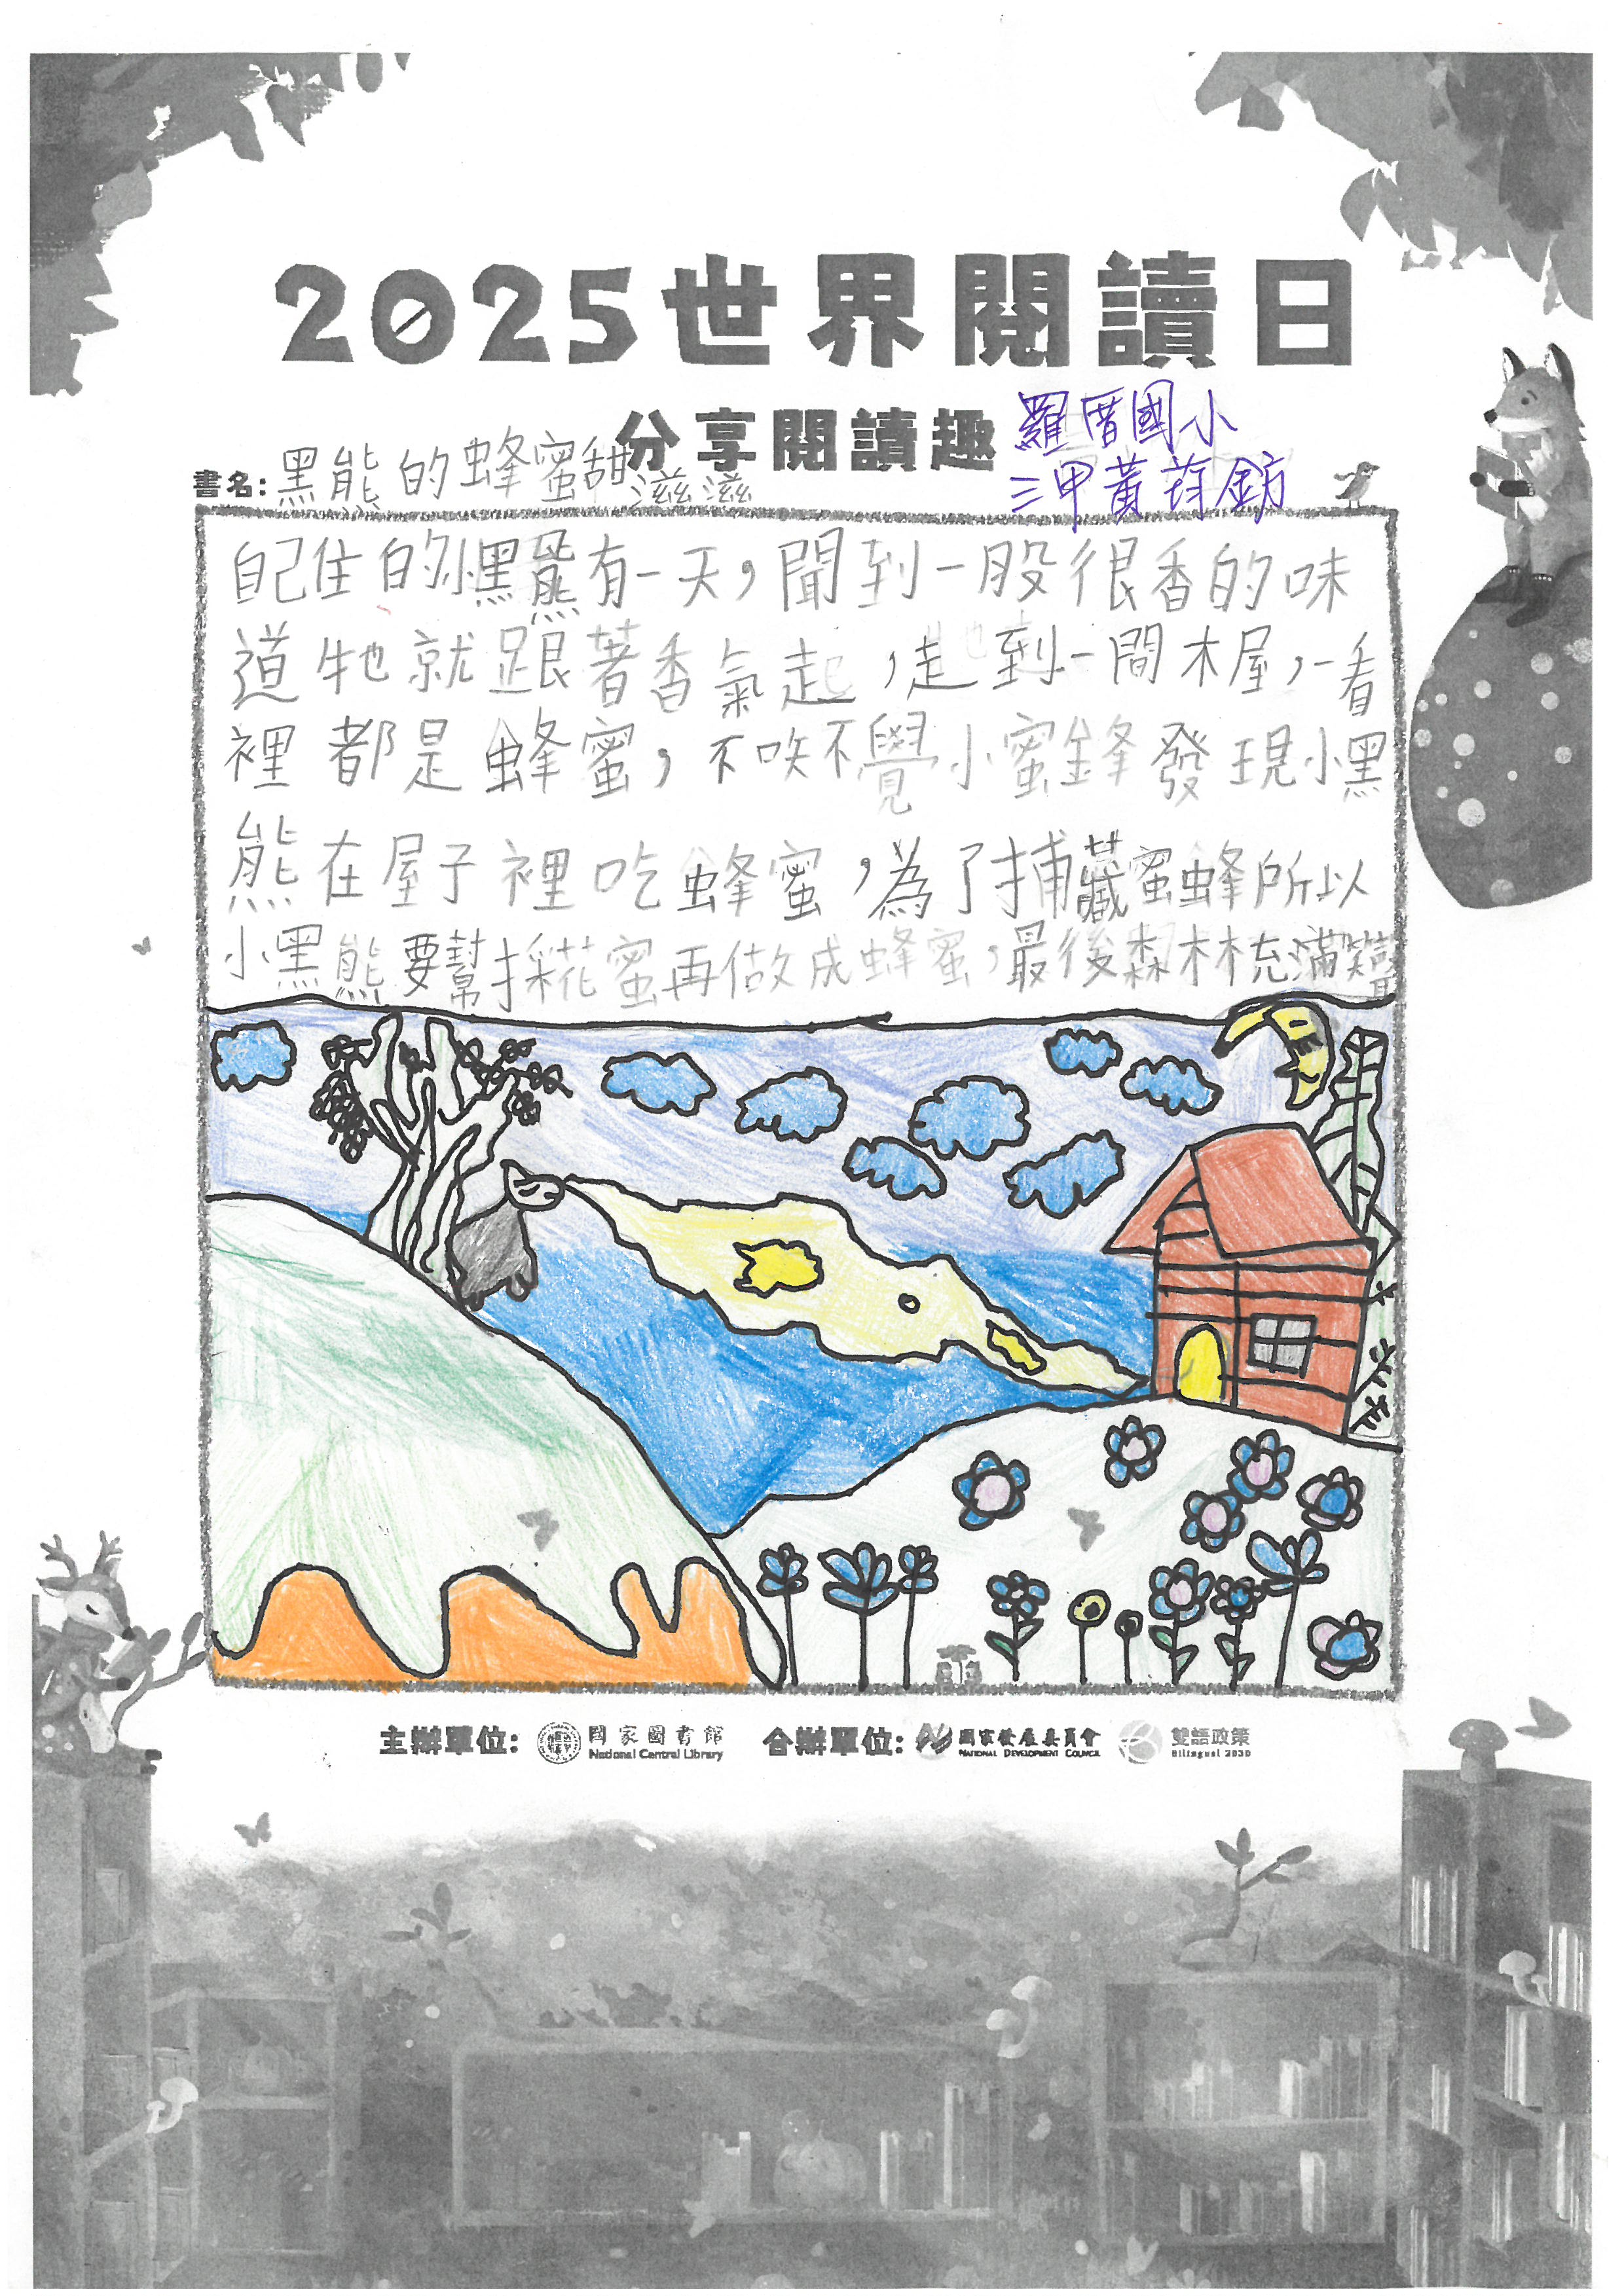 2025世界閱讀日
分享閱讀趣
羅厝國小
三甲黃荇鈁
書名：黑熊的蜂蜜甜滋滋
自己住的小黑熊有一天，聞到一股很香的味
道牠就跟著香氣起，走到一間木屋，一看
裡都是蜂蜜，不唉不覺小蜜鋒發現小黑
熊在屋子裡吃蜂蜜，為了捕藏蜜蜂所以
小黑熊要幫採花蜜再做成蜂蜜，最後森林充滿笑聲
主辦單位：國家圖書館 合辦單位：國家發展委員會 雙語政策
National Central Library NATIONAL DEVELOPMENT COUNCIL Bilingual 2030